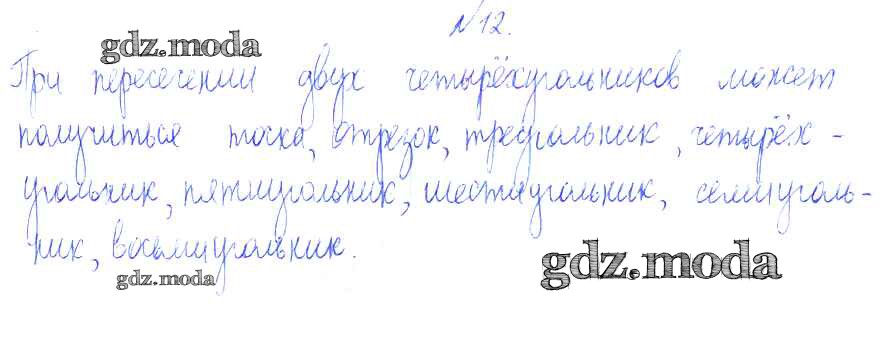 №12.
gdz.moda
При пересечении двух четырёхугольников может
получиться точка, отрезок, треугольник, четырёх-
угольник, пятиугольник, шестиугольник, семиуголь-
ник, восьмиугольник.
gdz.moda
gdz.moda